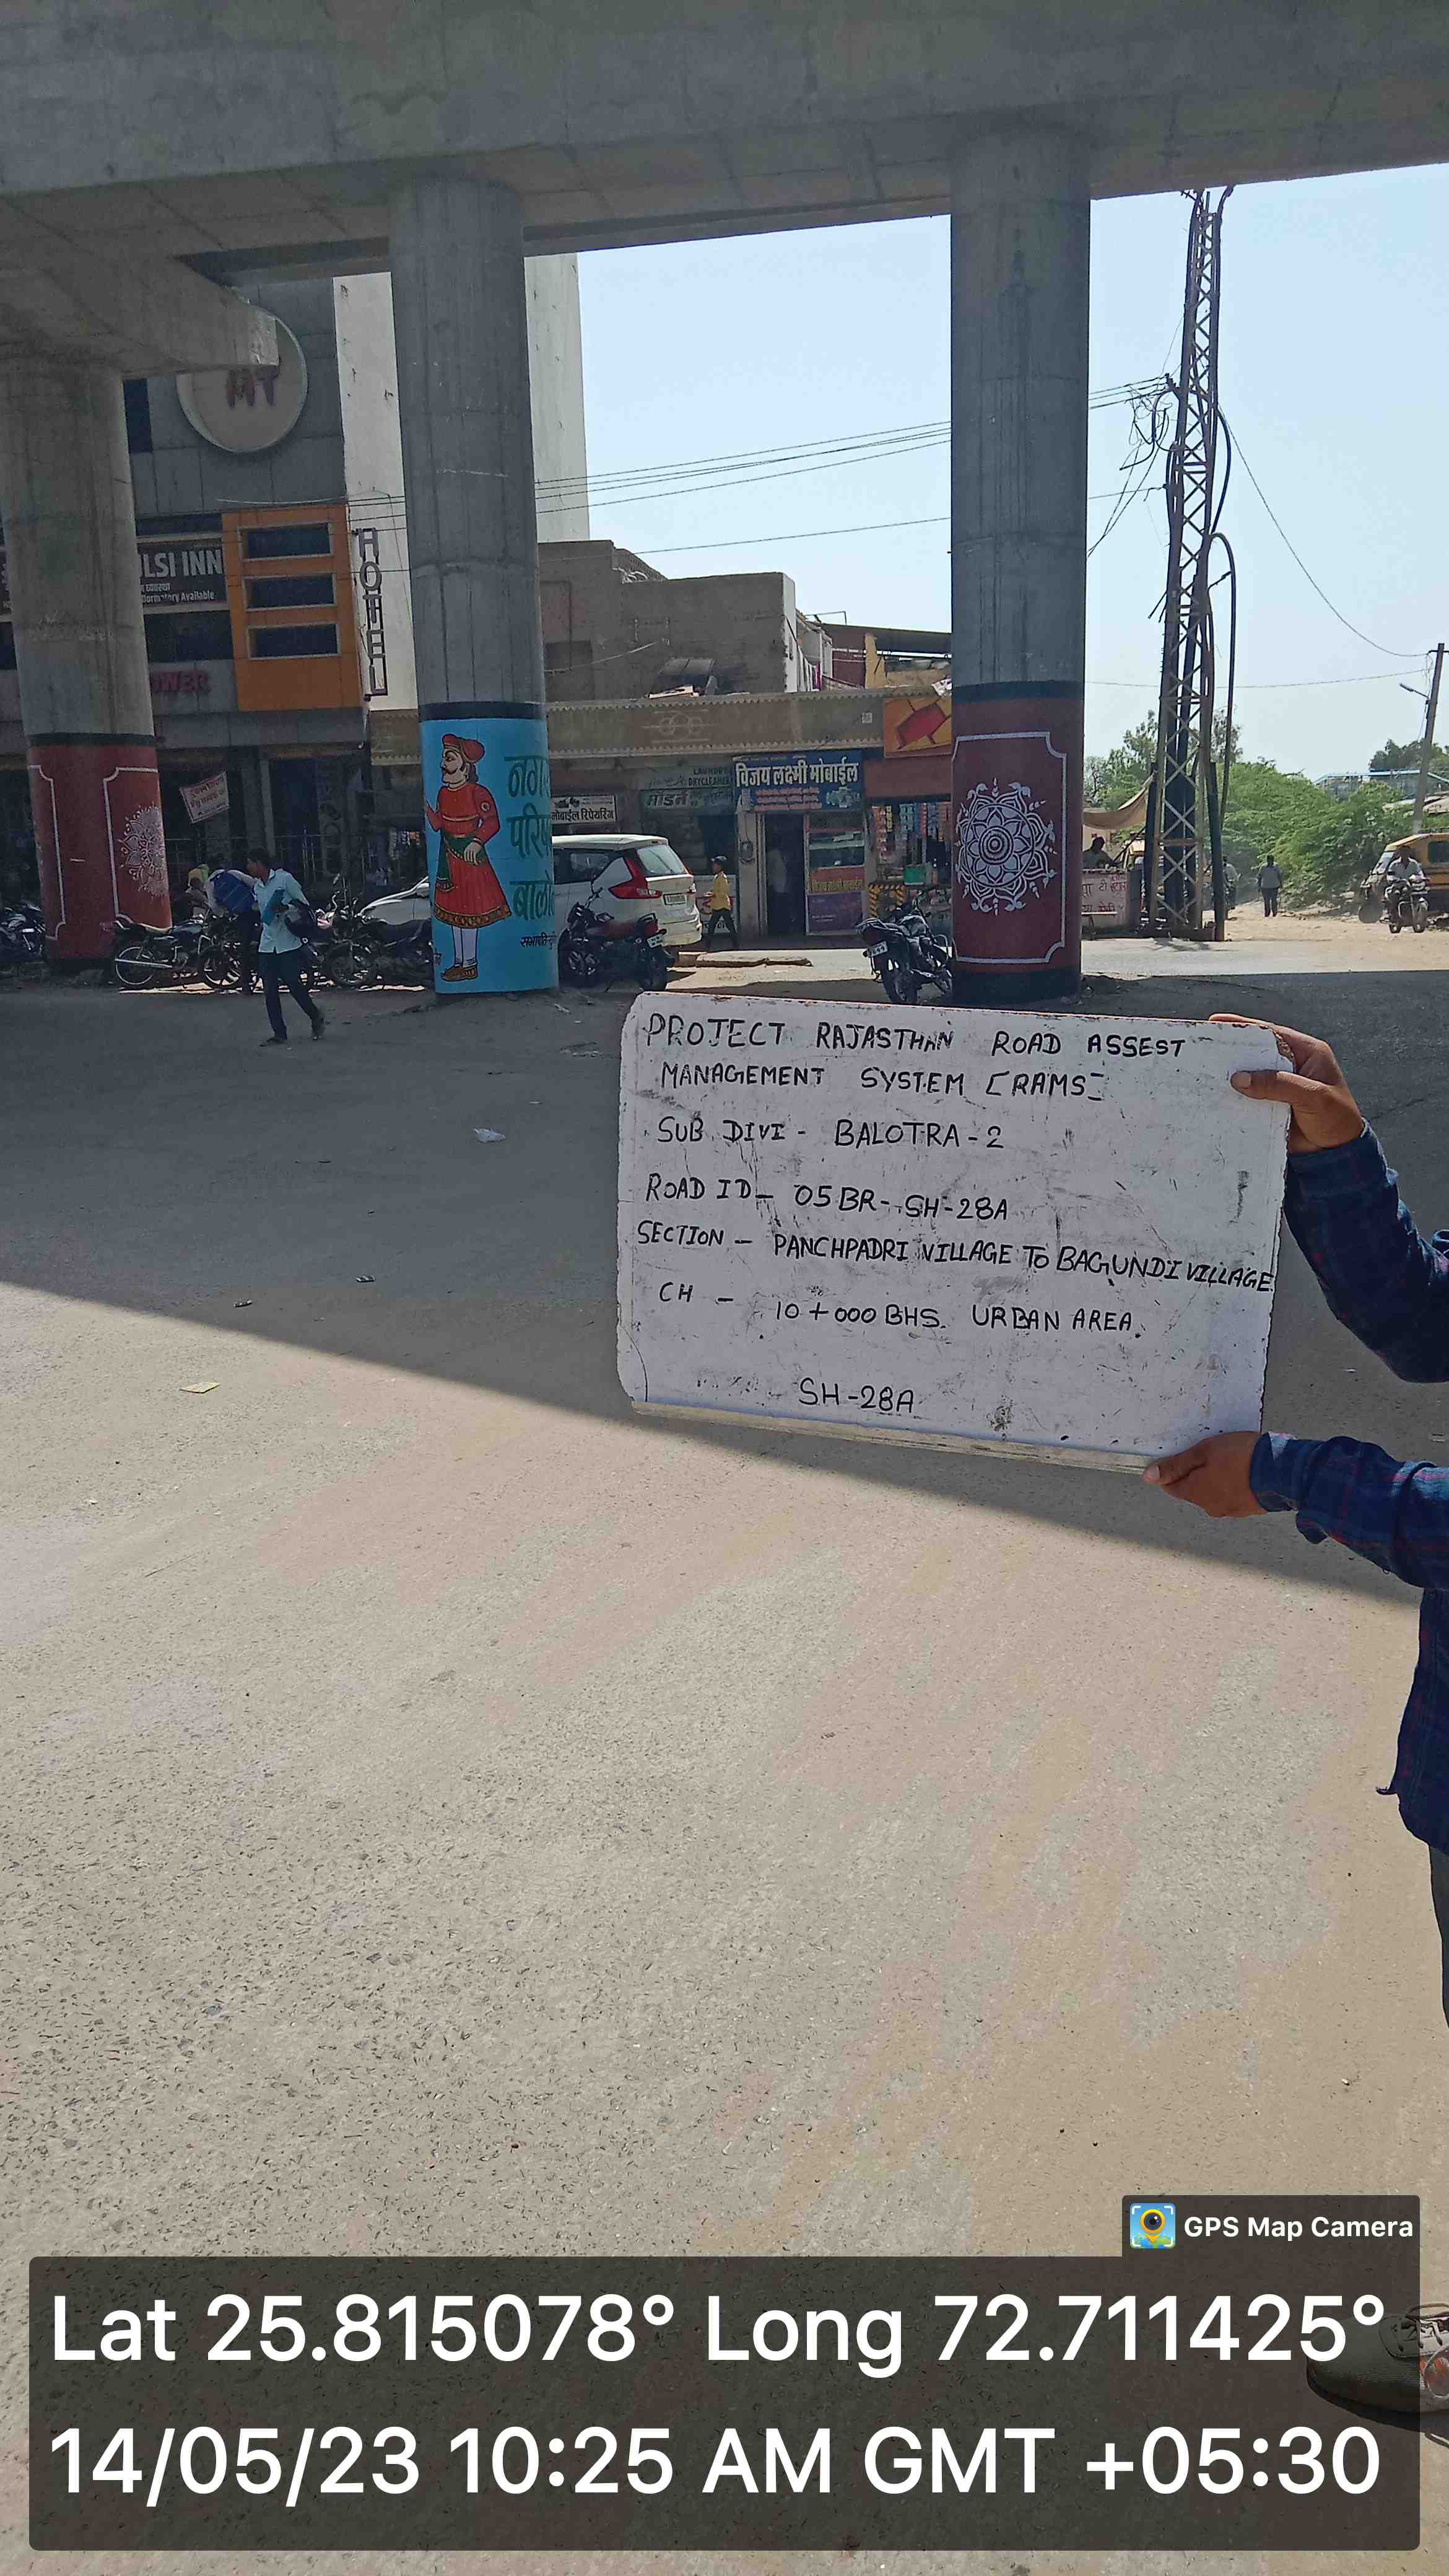 MT
LSI INN
Dormitory Available
HOTEL
OWER
नगर
परिष
बालो
LAUNDRY
DRYCLEANERS
मॉडर्न
मोबाईल रिपेयरिंग
विजय लक्ष्मी मोबाईल
PROJECT RAJASTHAN ROAD ASSEST
MANAGEMENT SYSTEM [RAMS]
SUB DIVI - BALOTRA - 2
ROAD ID - 05 BR - SH - 28A
SECTION - PANCHPADRI VILLAGE TO BAGUNDI VILLAGE
CH - 10 + 000 BHS. URBAN AREA.
SH - 28A
GPS Map Camera
Lat 25.815078° Long 72.711425°
14/05/23 10:25 AM GMT +05:30